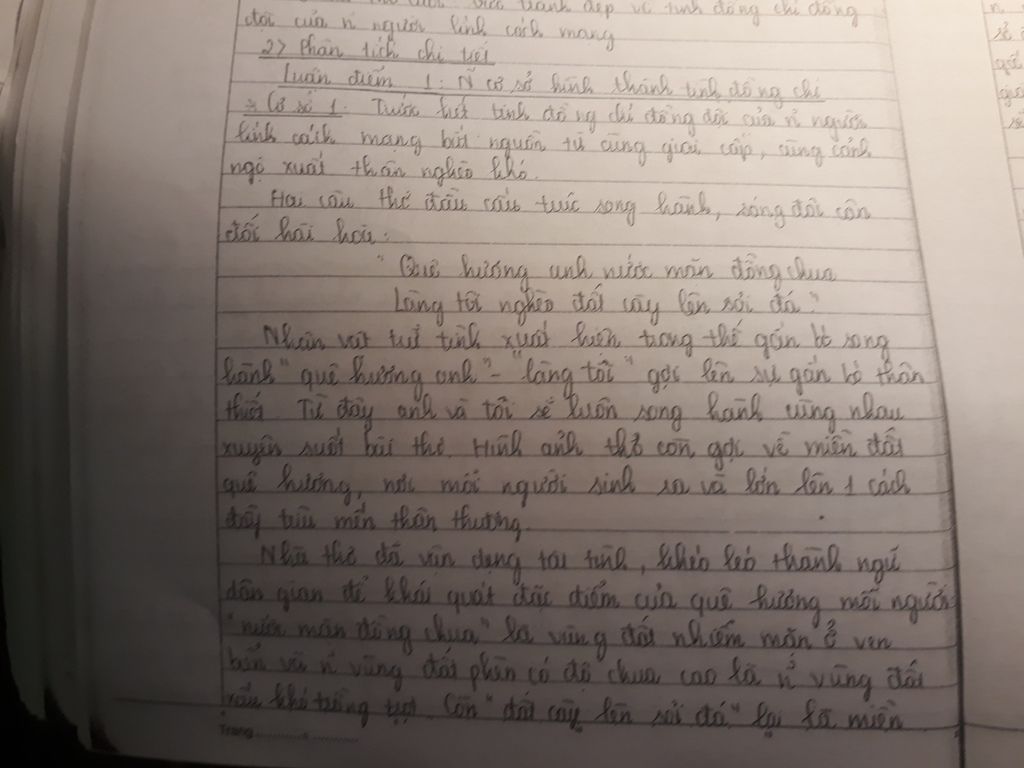 đội của n người lính cách mạng
2> Phân tích chi tiết
Luận điểm 1: N cơ sở hình thành tình đồng chí
Cơ sở 1: Trước hết tình đồng chí đồng đội của n người
lính cách mạng bắt nguồn từ cùng giai cấp, cùng cảnh
ngộ xuất thân nghèo khó.
Hai câu thơ đầu cấu trúc song hành, sóng đôi cân
đối hài hoà:
"Quê hương anh nước mặn đồng chua
Làng tôi nghèo đất cày lên sỏi đá."
Nhân vật trữ tình xuất hiện trong thế gắn bó song
hành "quê hương anh" - "làng tôi" gợi lên sự gắn bó thân
thiết. Từ đây anh và tôi sẽ luôn song hành cùng nhau
xuyên suốt bài thơ. Hình ảnh thơ còn gợi về miền đất
quê hương, nơi mỗi người sinh ra và lớn lên 1 cách
đầy trìu mến thân thương.
Nhà thơ đã vận dụng tài tình, khéo léo thành ngữ
dân gian để khái quát đặc điểm của quê hương mỗi người
"nước mặn đồng chua" là vùng đất nhiễm mặn ở ven
biển và n vùng đất phèn có độ chua cao là n vùng đất
xấu khó trồng trọt. Còn "đất cày lên sỏi đá" lại là miền
Trang